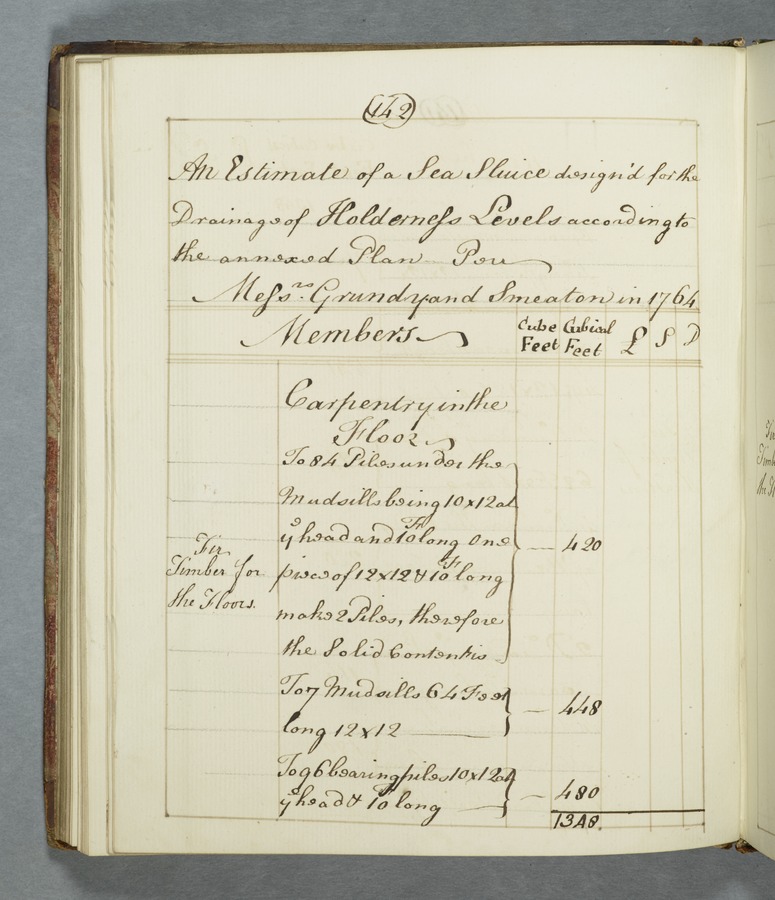 142
An Estimate of a Sea Sluice design'd for the
Drainage of Holderness Levels according to
the annexed Plan Per
Messrs. Grundy and Smeaton in 1764
Members
Cube Feet
Cubical Feet
£ S D
Carpentry in the
Floor
To 84 Piles under the
Mudsills being 10 x 12 at
ye head and 10 Ft long One
piece of 12 x 12 & 10 Ft long
make 2 Piles, therefore
the Solid Content is
420
Fir
Timber for
the Floors.
To 7 Mudsills 64 Feet
long 12 x 12
448
To 96 bearing piles 10 x 12 at
ye head & 10 long
480
1348